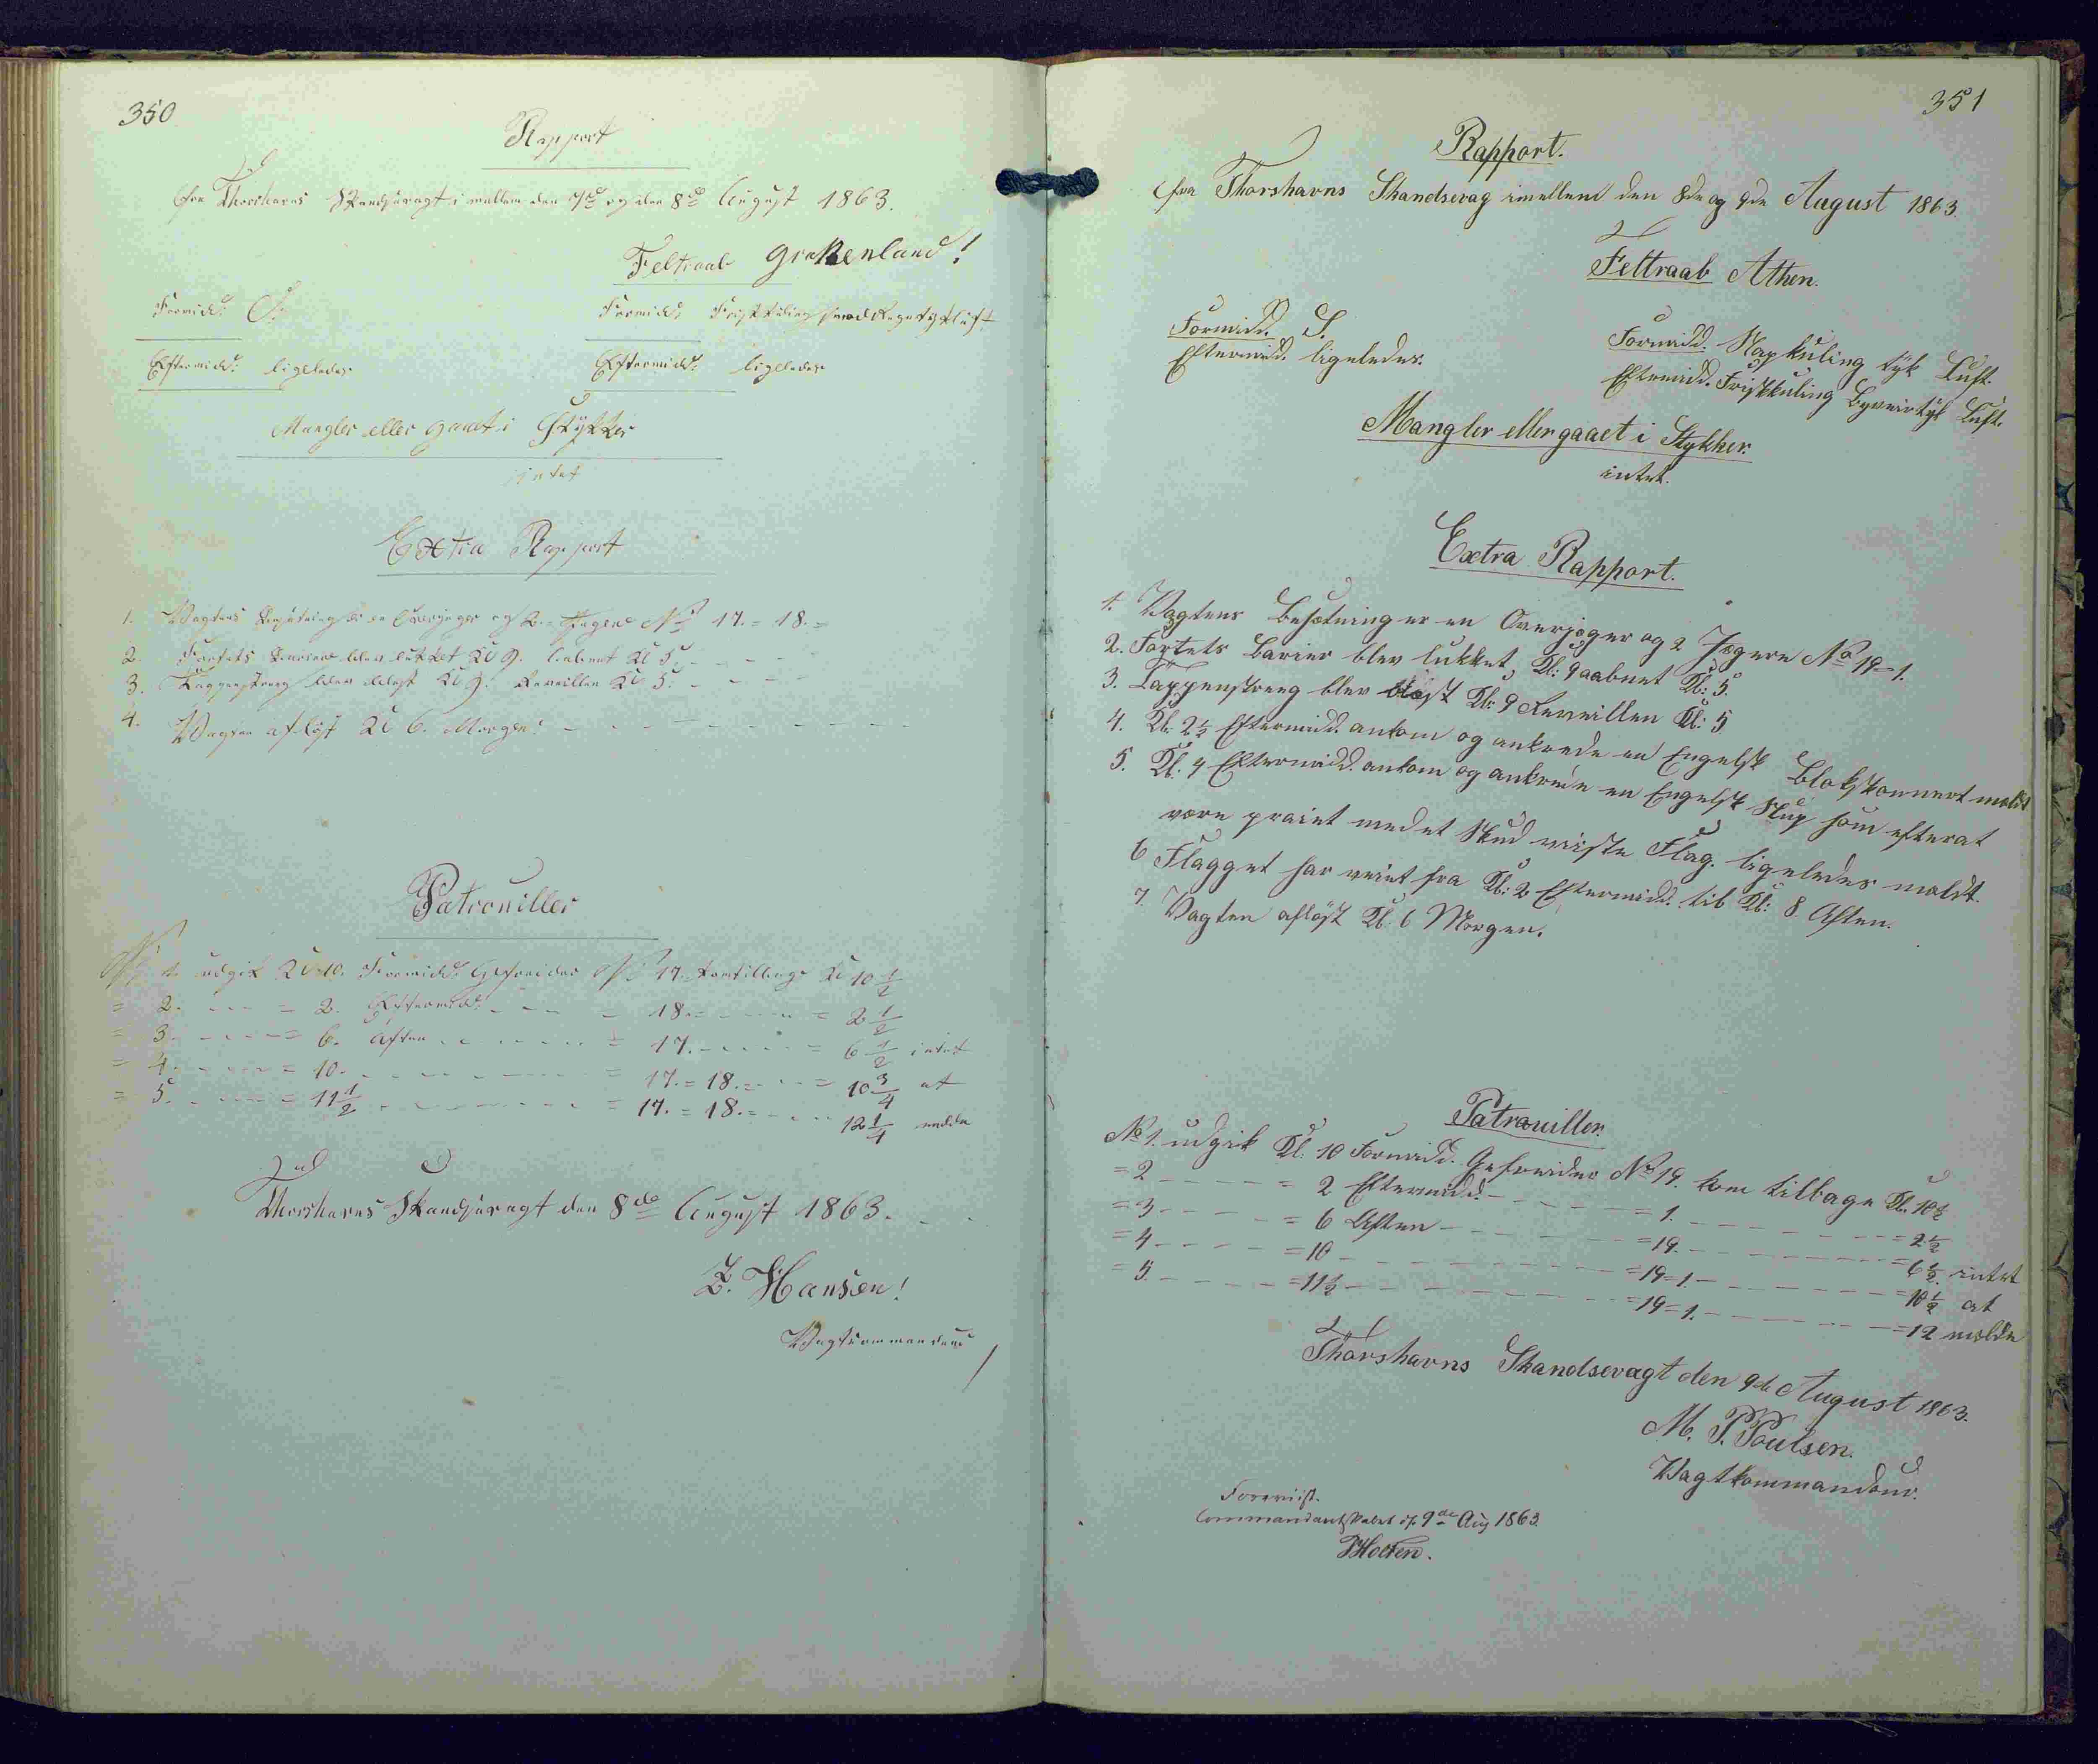 350
Rapport
fra Thorshavns Skandsevagt imellem den 7de og den 8de August 1863.
Feltraab Grækenland!
Formidd: S.
Formidd: Frisk Kuling med Regntykluft
Eftermidd: ligeledes
Eftermidd: ligeledes
Mangler eller gaaet i Stykker
intet
Extra Rapport
1. Vagtens Besætning er en Overjæger og 2 Jægere No 17 = 18. =
2. Fortets Barriere blev lukket Kl 9. aabnet Kl 5. - - - -
3. Tappenstreg blev blæst Kl 9. Reveillen Kl 5. - - - -
4. Vagten afløst Kl 6. Morgen. - - - - - - - - -
Patrouiller
No 1. udgik Kl 10. Formidd: Gefreider No 17. kom tilbage Kl 10 1/2
= 2. - - - = 2. Eftermidd: - - - = 18. - - - - = 2 1/2
= 3. - - - = 6. Aften - - - - - = 17. - - - - = 6 1/2 intet
= 4. - - - = 10. - - - - - - = 17. = 18. - - - = 10 3/4 at
= 5. - - - = 11 1/2 - - - - - = 17. = 18. = - - - 12 1/4 melde
Thorshavns Skandsevagt den 8de August 1863.
Z. Hansen!
Vagtcommandeur
351
Rapport.
fra Thorshavns Skandsevag imellem den 8de og 9de August 1863.
Feltraab Athen.
Formidd. S.
Formidd. Rap kuling tyk Luft.
Eftermidd. ligeledes.
Eftermidd. Friskkuling Byveirtyk Luft.
Mangler eller gaaet i Stykker.
intet.
Extra Rapport.
1. Vagtens Besætning er en Overjæger og 2 Jægere No 19 = 1.
2. Fortets Barier blev lukket, Kl: 9 aabnet Kl: 5.
3. Tappenstreng blev blæst Kl: 9 Reveillen Kl: 5
4. Kl. 2 1/2 Eftermidd. ankom og ankrede en Engelsk Blokskonnert meldt
5. Kl: 4 Eftermidd. ankom og ankrede en Engelsk Slup som efterat
være praiet med et Skud viiste Flag. ligeledes meldt.
6 Flagget har veiet fra Kl: 2 Eftermidd. til Kl: 8 Aften.
7. Vagten afløst Kl. 6 Morgen.
Patrouiller.
No 1. udgik Kl. 10 Formidd. Gefreider No 19. kom tilbage Kl. 10 1/2
= 2 - - - - - = 2 Eftermidd. - - - - - = 1. - - - - - = 2 1/2
= 3 - - - - - = 6 Aften - - - - - = 19. - - - - - = 6 1/2 intet
= 4 - - - - - = 10 - - - - - = 19 = 1 - - - - - = 10 1/2 at
= 5. - - - - - = 11 1/2 - - - - - = 19 = 1. - - - - - = 12 melde
Thorshavns Skandsevagt den 9de August 1863.
M. P. Poulsen.
Vagtkommandeur.
Foreviist.
Commandantskabet d. 9de Aug 1863
Holten.